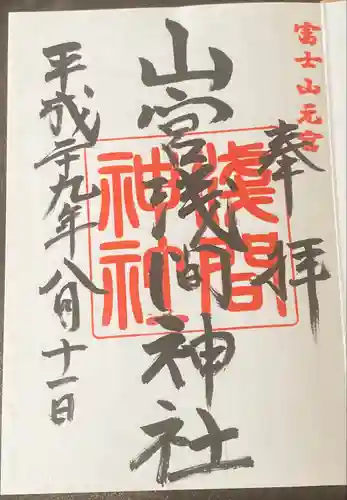 富士山元宮
奉拝
山宮浅間神社
平成二十九年八月十一日
浅間
神社